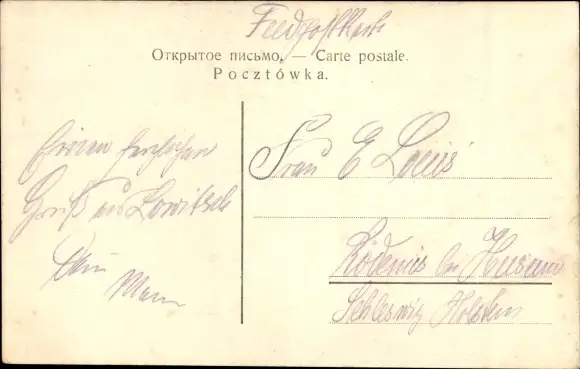 Feldpostkarte
Открытое письмо. — Carte postale.
Pocztówka.
Einen herzlichen
Gruß aus Lowitsch
Dein
Mann
Frau E Louis
Rödemis bei Husum
Schleswig Holstein